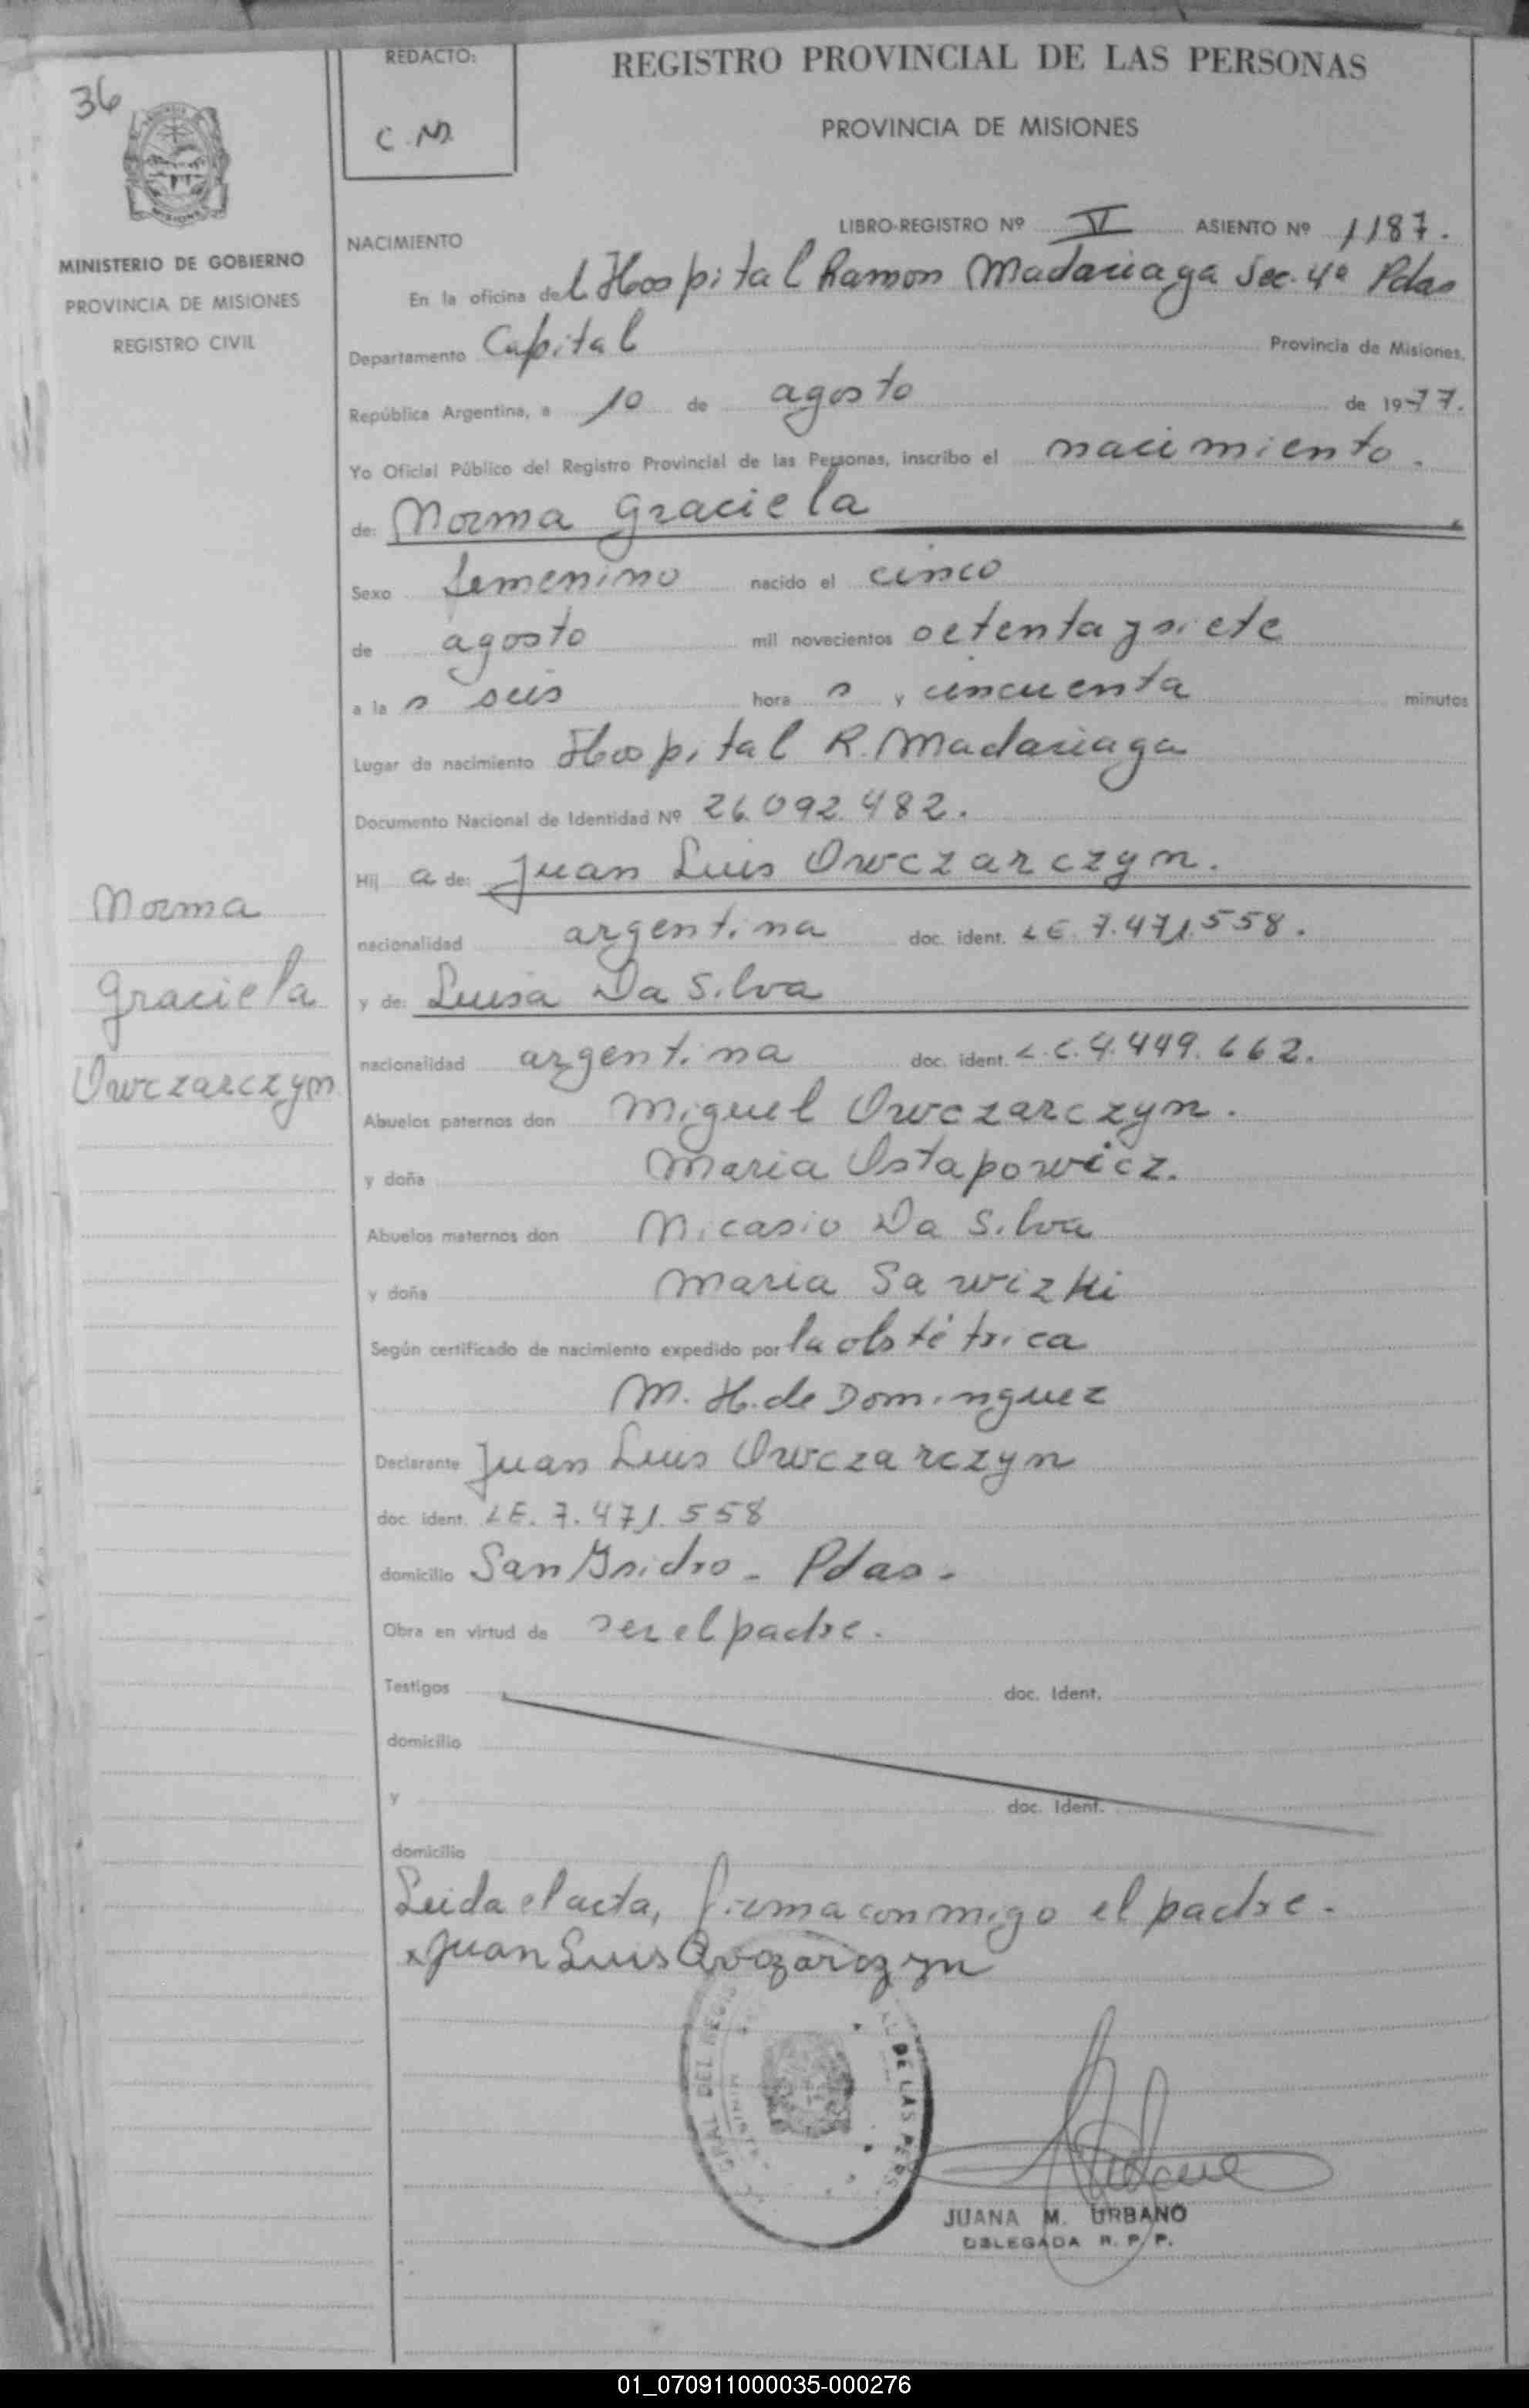 36
REDACTO:
C.N.
REGISTRO PROVINCIAL DE LAS PERSONAS
PROVINCIA DE MISIONES
MINISTERIO DE GOBIERNO
PROVINCIA DE MISIONES
REGISTRO CIVIL
LIBRO-REGISTRO Nº VI ASIENTO Nº 1187.
NACIMIENTO
En la oficina del Hospital Ramon Madariaga Sec. 4ª Pdas
Departamento Capital Provincia de Misiones,
República Argentina, a 10 de agosto de 1977.
Yo Oficial Público del Registro Provincial de las Personas, inscribo el nacimiento.
de: Norma Graciela
Sexo femenino nacido el cinco
de agosto mil novecientos setenta y siete
a la s seis hora s y cincuenta minutos
Lugar de nacimiento Hospital R. Madariaga
Documento Nacional de Identidad Nº 26.092.482.
Hij a de: Juan Luis Owczarczyn.
nacionalidad argentina doc. ident. LE. 7.471.558.
y de: Luisa Da Silva
nacionalidad argentina doc. ident. L.C. 4.449.662.
Abuelos paternos don Miguel Owczarczyn.
y doña Maria Ostapowicz.
Abuelos maternos don Nicasio Da Silva
y doña Maria Sawizki
Según certificado de nacimiento expedido por la obstétrica
M. H. de Dominguez
Declarante Juan Luis Owczarczyn
doc. ident. LE. 7.471.558
domicilio San Isidro - Pdas.
Obra en virtud de ser el padre.
Testigos doc. Ident.
domicilio
y doc. Ident.
domicilio
Leida el acta, firma conmigo el padre.
x Juan Luis Owczarczyn
Norma
Graciela
Owczarczyn
DEL REGIS
DE LAS PERS
JUANA M. URBANO
DELEGADA R. P. P.
01_070911000035-000276